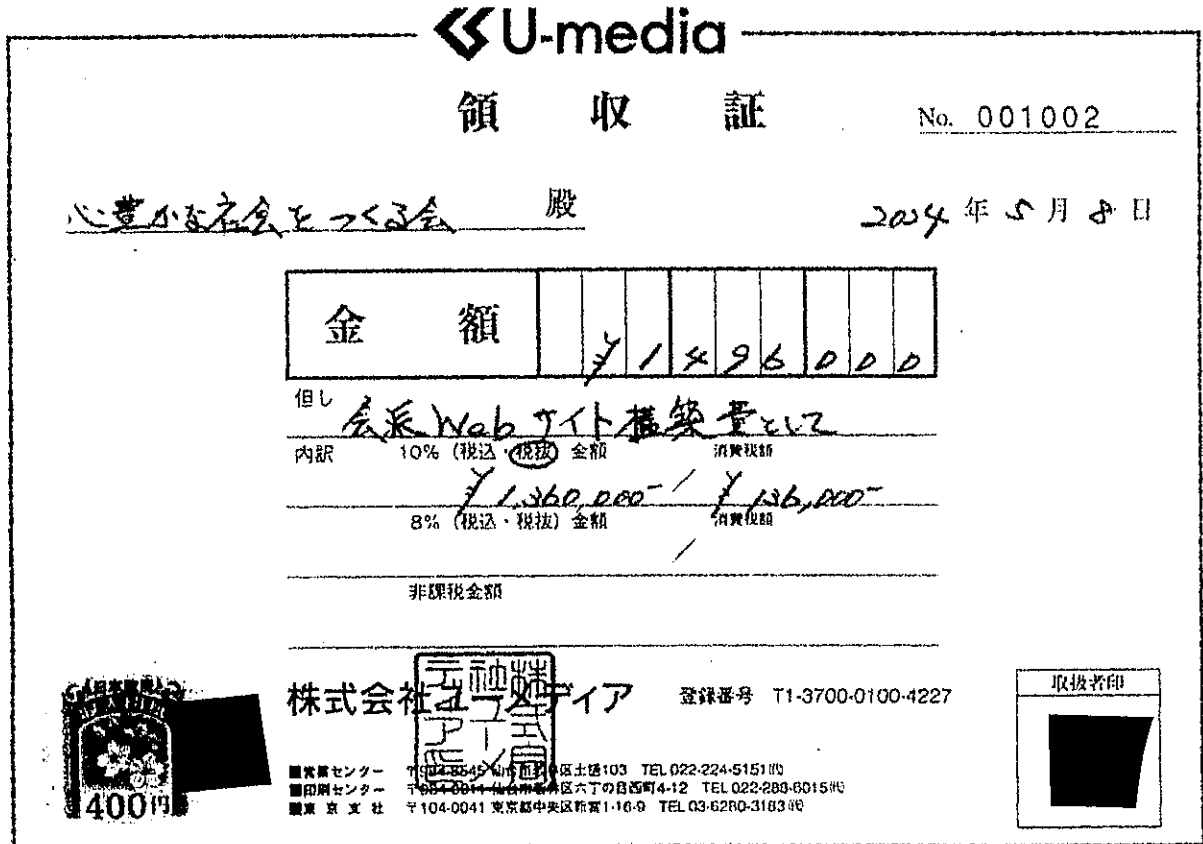 U-media
領収証
No. 001002
心豊かな社会をつくる会 殿
2024年5月8日
金額 ¥1496000
但し 会派Webサイト構築費として
内訳 10% (税込・税抜) 金額 消費税額
¥1,360,000- ¥136,000-
8% (税込・税抜) 金額 消費税額
非課税金額
株式会社ユーメディア 登録番号 T1-3700-0100-4227
取扱者印
株式会社ユーメディア
■営業センター 区土樋103 TEL 022-224-5151㈹
■印刷センター 区六丁の目西町4-12 TEL 022-288-6015㈹
■東京支社 〒104-0041 東京都中央区新富1-16-9 TEL 03-6280-3183㈹
400円